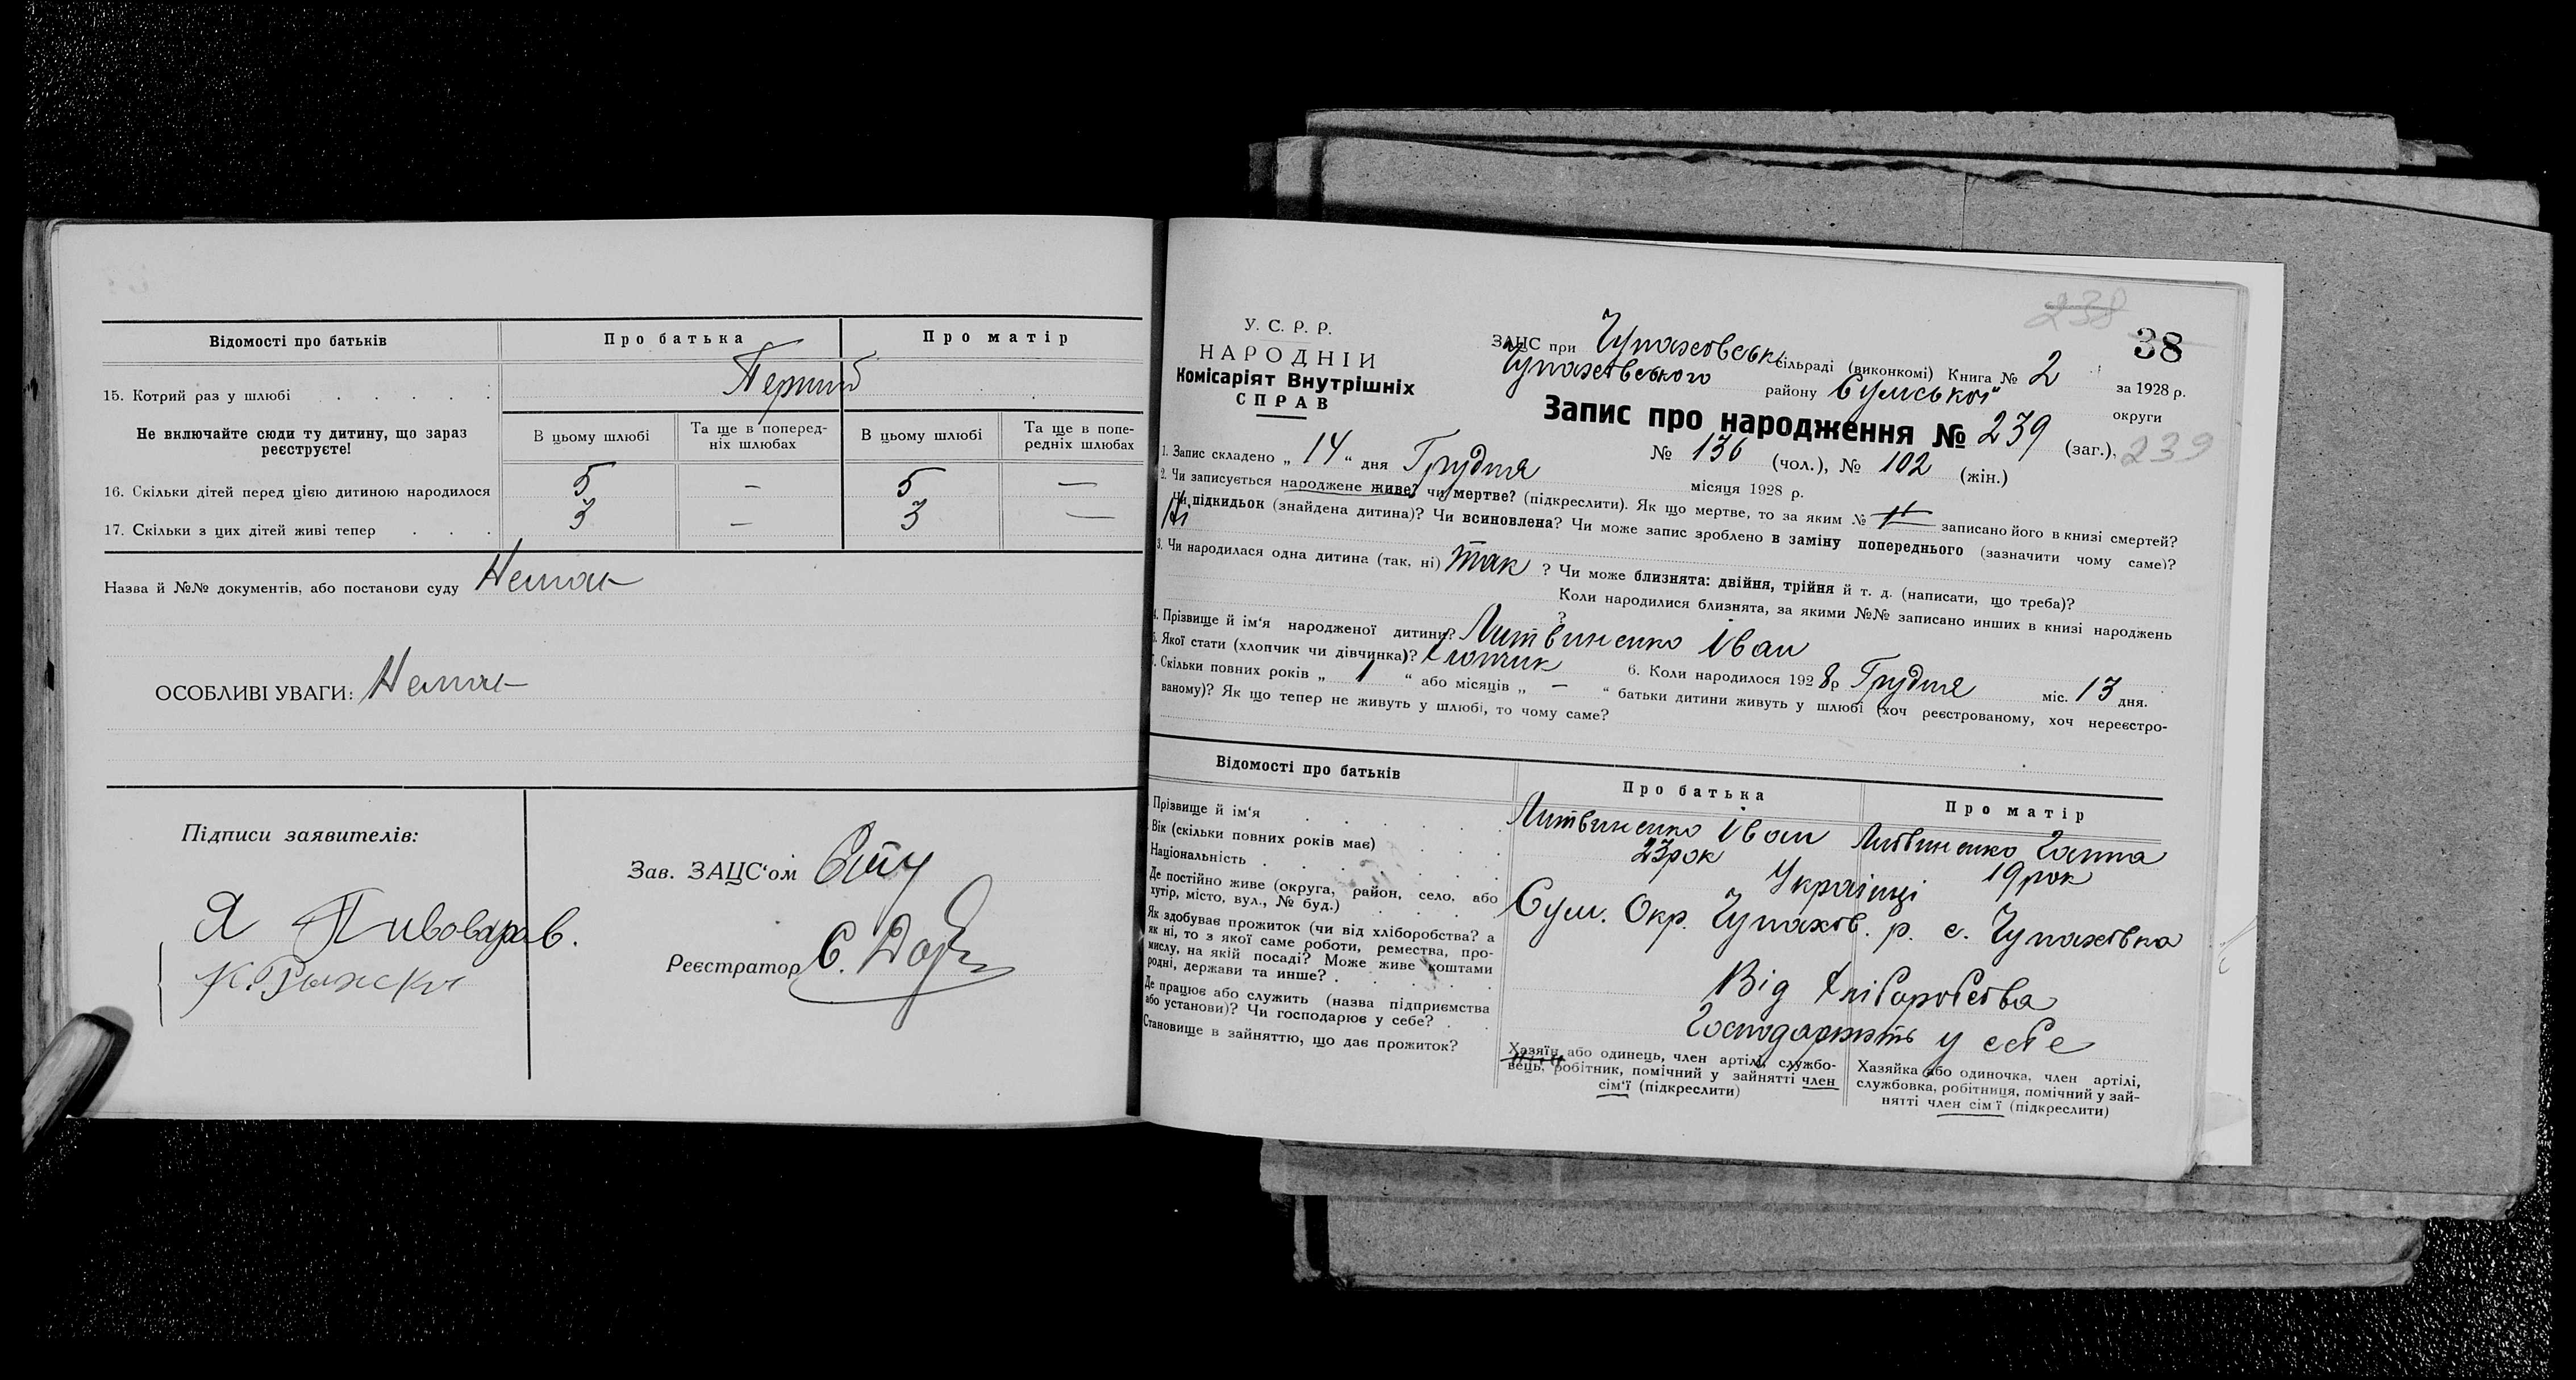 Відомості про батьків
Про батька
Про матір
15. Котрий раз у шлюбі
Перший
Не включайте сюди ту дитину, що зараз реєструєте!
В цьому шлюбі
Та ще в поперед-
ніх шлюбах
В цьому шлюбі
Та ще в попе-
редніх шлюбах
16. Скільки дітей перед цією дитиною народилося 5 — 5 —
17. Скільки з цих дітей живі тепер 3 — 3 —
Назва й №№ документів, або постанови суду Немає
ОСОБЛИВІ УВАГИ: Немає
Підписи заявителів:
Я Пивоварав.
Зав. ЗАЦС‘ом
Реєстратор
238
38
У. С. Р. Р.
НАРОДНІЙ
Комісаріят Внутрішніх
СПРАВ
ЗАЦС при Чупахівськ. сільраді (виконкомі) Книга № 2 за 1928 р.
Чупахівського району Сумської округи
Запис про народження № 239 (заг.), 239
№ 136 (чол.), № 102 (жін.)
1. Запис складено „ 14 “ дня Грудня місяця 1928 р.
2. Чи записується народжене живе? чи мертве? (підкреслити). Як що мертве, то за яким № записано його в книзі смертей?
Чи підкидьок (знайдена дитина)? Чи всиновлена? Чи може запис зроблено в заміну попереднього (зазначити чому саме)?
Ні
3. Чи народилася одна дитина (так, ні) так ? Чи може близнята: двійня, трійня й т. д. (написати, що треба)?
Коли народилися близнята, за якими №№ записано инших в книзі народжень
?
4. Прізвище й ім‘я народженої дитини? Литвиненко Іван
5. Якої стати (хлопчик чи дівчинка)? Хлопчик 6. Коли народилося 1928 р Грудня міс. 13 дня.
7. Скільки повних років „ 1 “ або місяців „ — “ батьки дитини живуть у шлюбі (хоч реєстрованому, хоч нереєстро-
ваному)? Як що тепер не живуть у шлюбі, то чому саме?
Відомості про батьків
Про батька
Про матір
Прізвище й ім‘я Литвиненко Іван Литвиненко Ганна
Вік (скільки повних років має) 23 рок 19 рок
Національність Українці
Де постійно живе (округа, район, село, або
хутір, місто, вул., № буд.) Сум. Окр. Чупахів. р. с. Чупахівка
Як здобуває прожиток (чи від хліборобства? а
як ні, то з якої саме роботи, ремества, про-
мислу, на якій посаді? Може живе коштами
родні, держави та инше? Від хліборобства
Де працює або служить (назва підприємства
або установи)? Чи господарює у себе? Господарюють у себе
Становище в зайняттю, що дає прожиток?
Хазяїн або одинець, член артілі, службо-
вець, робітник, помічний у зайнятті член
сім‘ї (підкреслити)
Хазяйка або одиночка, член артілі,
службовка, робітниця, помічний у зай-
нятті член сім‘ї (підкреслити)